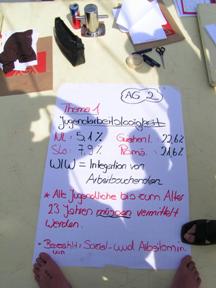 AG 2
Thema 1
Jugendarbeitslosigkeit
NL: 5,1% Griechenl. 22,6%
Slo. 7,9% Rumä. 21,6%
WIW = Integration von
Arbeitsuchenden
* Alle Jugendliche bis zum Alter
23 Jahren müssen vermittelt
werden.
- Bereich: Sozial- und Arbeitsmin